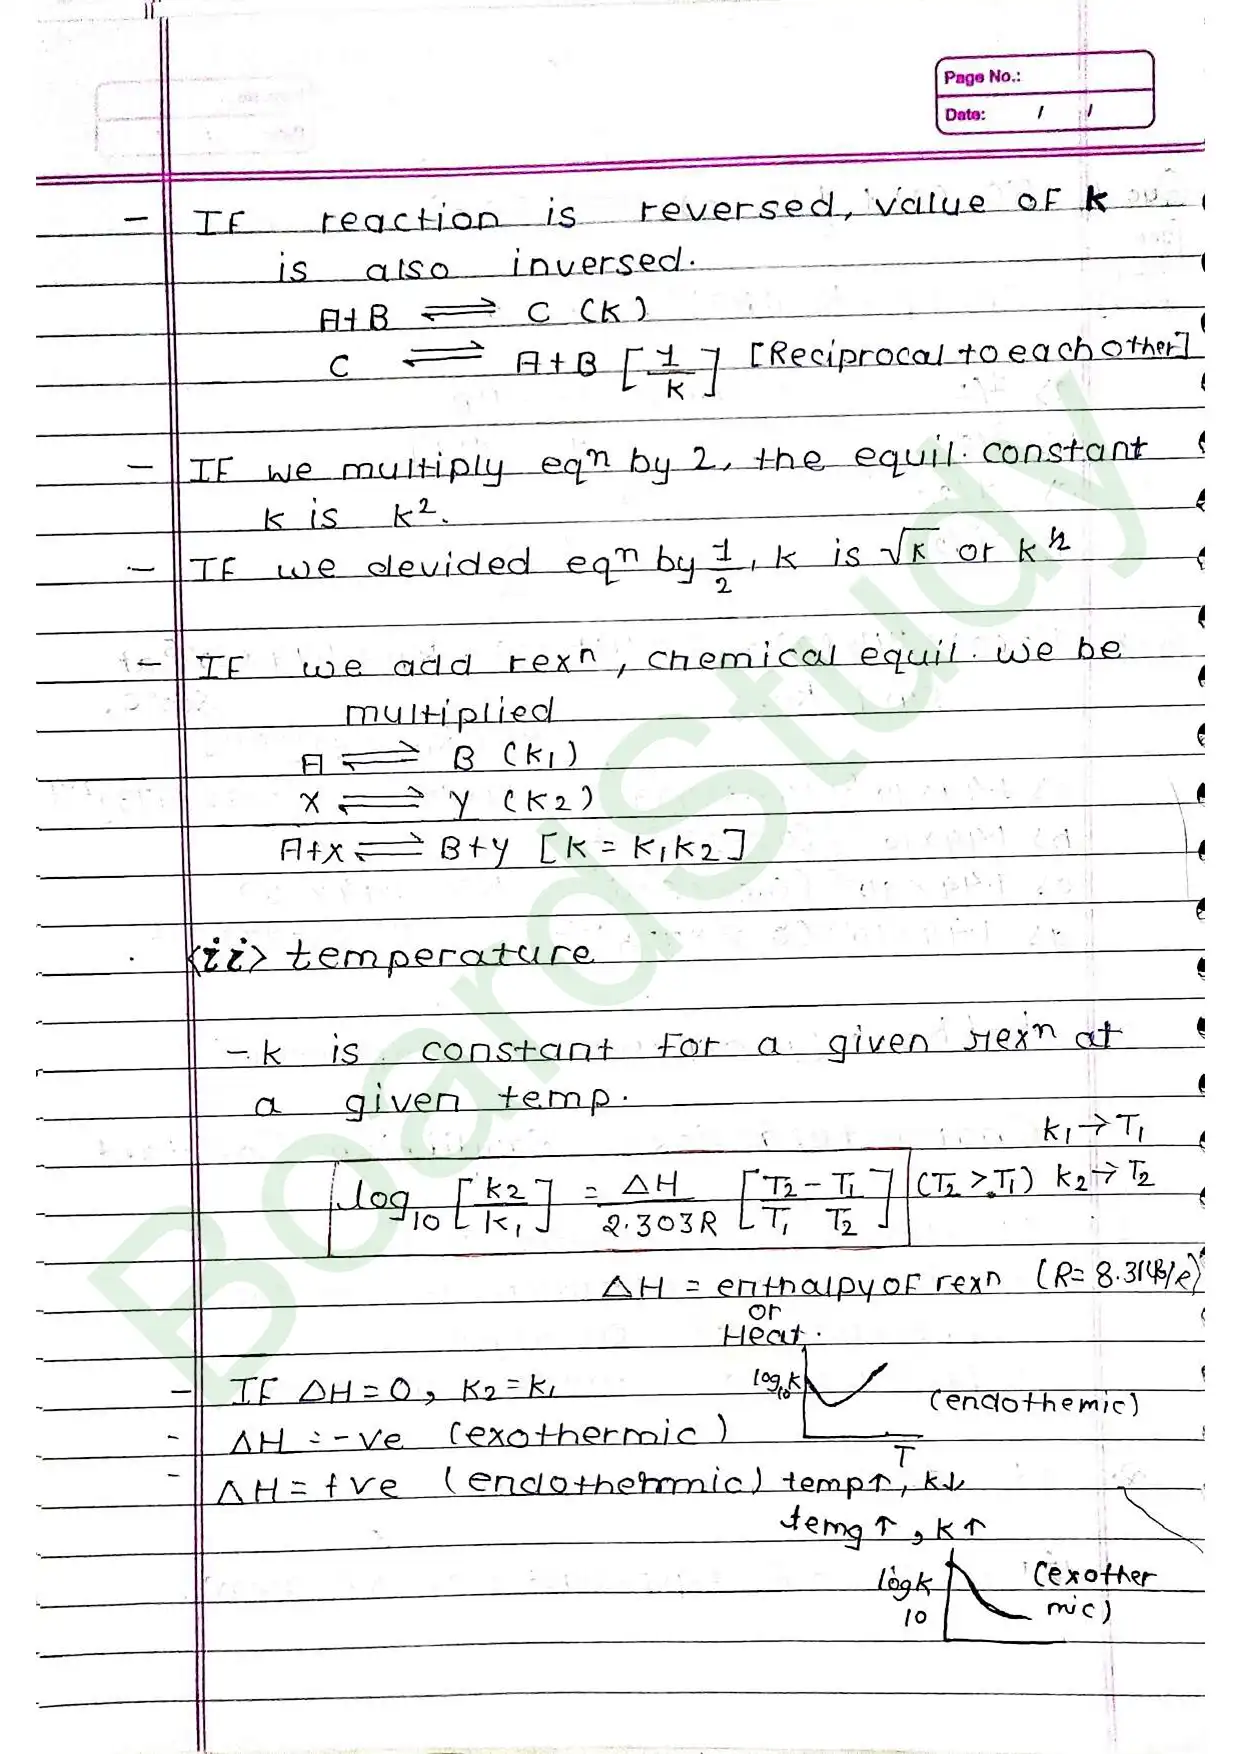 Page No.:
Date: / /
- IF reaction is reversed, value of k
is also inversed.
A+B ⇌ C (K)
C ⇌ A+B [1/K] [Reciprocal to each other]
- IF we multiply eqⁿ by 2, the equil. constant
k is k².
- IF we devided eqⁿ by 1/2, k is √K or k^1/2
- IF we add rexⁿ, chemical equil. we be
multiplied
A ⇌ B (K₁)
X ⇌ Y (K₂)
A+X ⇌ B+Y [K = K₁K₂]
<ii> temperature
- k is constant for a given rexⁿ at
a given temp.
k₁→T₁
log₁₀ [K₂/K₁] = ΔH/2.303R [T₂-T₁/T₁ T₂] (T₂>T₁) k₂→T₂
ΔH = enthalpy of rexn
or
Heat.
- IF ΔH=0, K₂=K₁
log₁₀K
(endothemic)
T
- ΔH = -ve (exothermic)
- ΔH = +ve (endothermmic) temp↑, k↓
temg↑, K↑
logk
10
(exother
mic)
BoardStudy